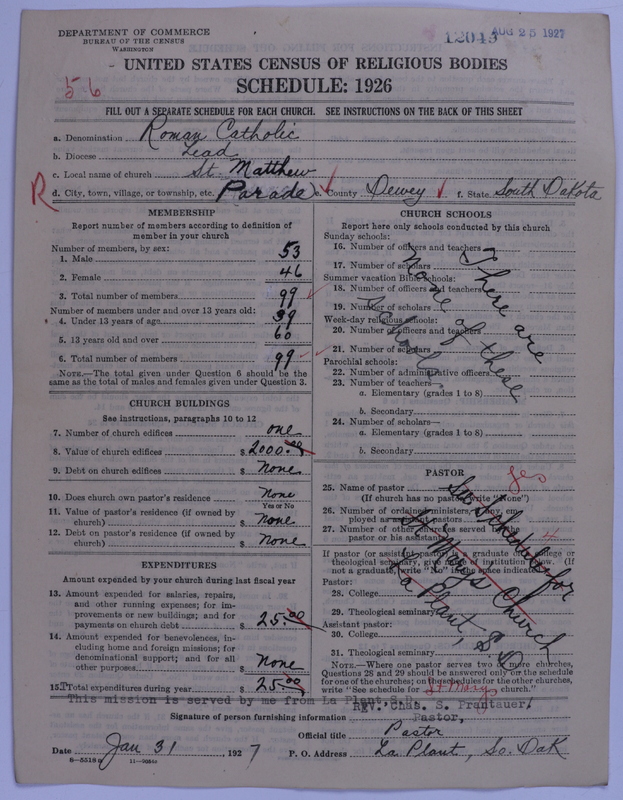 DEPARTMENT OF COMMERCE
BUREAU OF THE CENSUS
WASHINGTON
12045 AUG 25 1927
UNITED STATES CENSUS OF RELIGIOUS BODIES
56
SCHEDULE: 1926
FILL OUT A SEPARATE SCHEDULE FOR EACH CHURCH. SEE INSTRUCTIONS ON THE BACK OF THIS SHEET
a. Denomination Roman Catholic
b. Diocese Lead
c. Local name of church St. Matthew
R d. City, town, village, or township, etc. Parade e. County Dewey f. State South Dakota
MEMBERSHIP
Report number of members according to definition of
member in your church
Number of members, by sex:
1. Male 53
2. Female 46
3. Total number of members 99
Number of members under and over 13 years old:
4. Under 13 years of age 39
5. 13 years old and over 60
6. Total number of members 99
NOTE.—The total given under Question 6 should be the
same as the total of males and females given under Question 3.
CHURCH BUILDINGS
See instructions, paragraphs 10 to 12
7. Number of church edifices one
8. Value of church edifices $ 2000.00
9. Debt on church edifices $ None
10. Does church own pastor's residence None
Yes or No
11. Value of pastor's residence (if owned by
church) $ None
12. Debt on pastor's residence (if owned by
church) $ None
EXPENDITURES
Amount expended by your church during last fiscal year
13. Amount expended for salaries, repairs,
and other running expenses; for im-
provements or new buildings; and for
payments on church debt $ 25.00
14. Amount expended for benevolences, in-
cluding home and foreign missions; for
denominational support; and for all
other purposes $ None
15. Total expenditures during year $ 25.00
CHURCH SCHOOLS
Report here only schools conducted by this church
Sunday schools:
16. Number of officers and teachers
17. Number of scholars
Summer vacation Bible schools:
18. Number of officers and teachers
19. Number of scholars
Week-day religious schools:
20. Number of officers and teachers
21. Number of scholars
Parochial schools:
22. Number of administrative officers
23. Number of teachers—
a. Elementary (grades 1 to 8)
b. Secondary
24. Number of scholars—
a. Elementary (grades 1 to 8)
b. Secondary
There are
none of these
schools.
PASTOR
yes
25. Name of pastor
(If church has no pastor, write "None")
26. Number of ordained ministers, if any, em-
ployed as assistant pastors
27. Number of other churches served by the
pastor or his assistants 4
If pastor (or assistant pastor) is a graduate of college or
theological seminary, give name of institution below. (If
not a graduate, write "No" in the space indicated)
Pastor:
28. College
29. Theological seminary
Assistant pastor:
30. College
31. Theological seminary
See Schedule for
St Marys Church
La Plant, S. D
NOTE.—Where one pastor serves two or more churches,
Questions 28 and 29 should be answered only on the schedule
for one of the churches; on the schedules for the other churches,
write "See schedule for St Marys church."
This mission is served by me from La Plant, S.D.
Rev. Chas. S. Prantauer,
Signature of person furnishing information Pastor,
Official title Pastor
Date Jan 31, 1927 P. O. Address La Plant, So. Dak
8—5518a 11—9054a